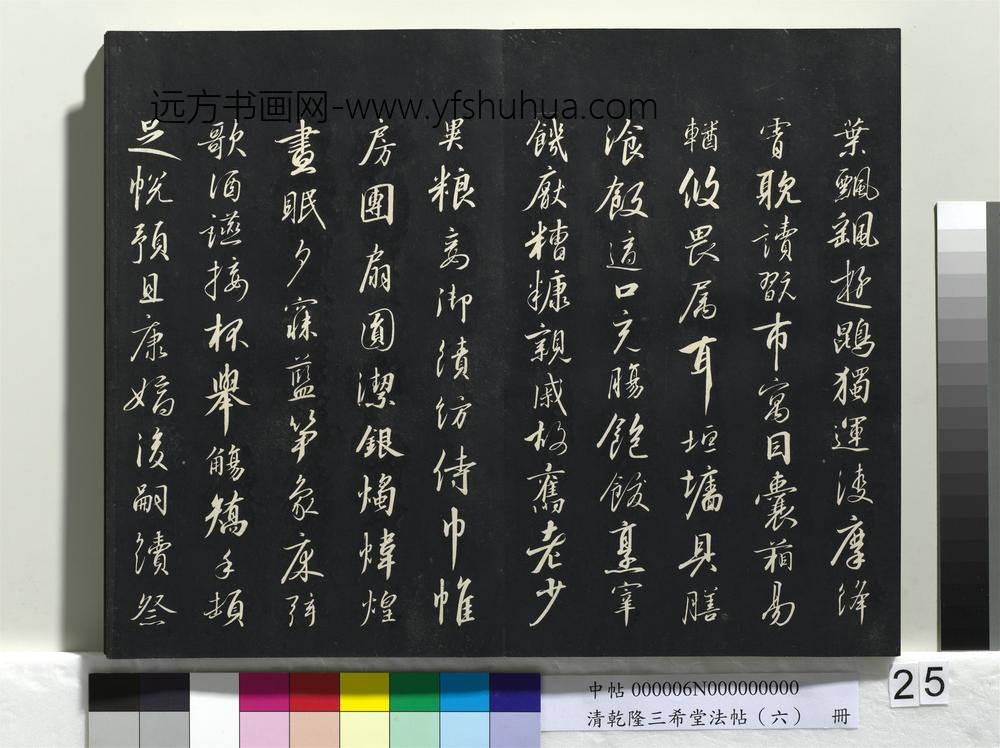 远方书画网-www.yfshuhua.com
葉飄颻遊鵾獨運淩摩絳
霄耽讀翫市寓目囊箱易
輶攸畏属耳垣墻具膳
飡飯適口充腸飽飫烹宰
饑厭糟糠親戚故舊老少
異粮妾御績紡侍巾帷
房團扇圓潔銀燭煒煌
晝眠夕寐藍笋象床弦
歌酒讌接杯舉觴矯手頓
足悦預且康嫡後嗣續祭
中帖 000006N000000000
清乾隆三希堂法帖（六） 冊
25